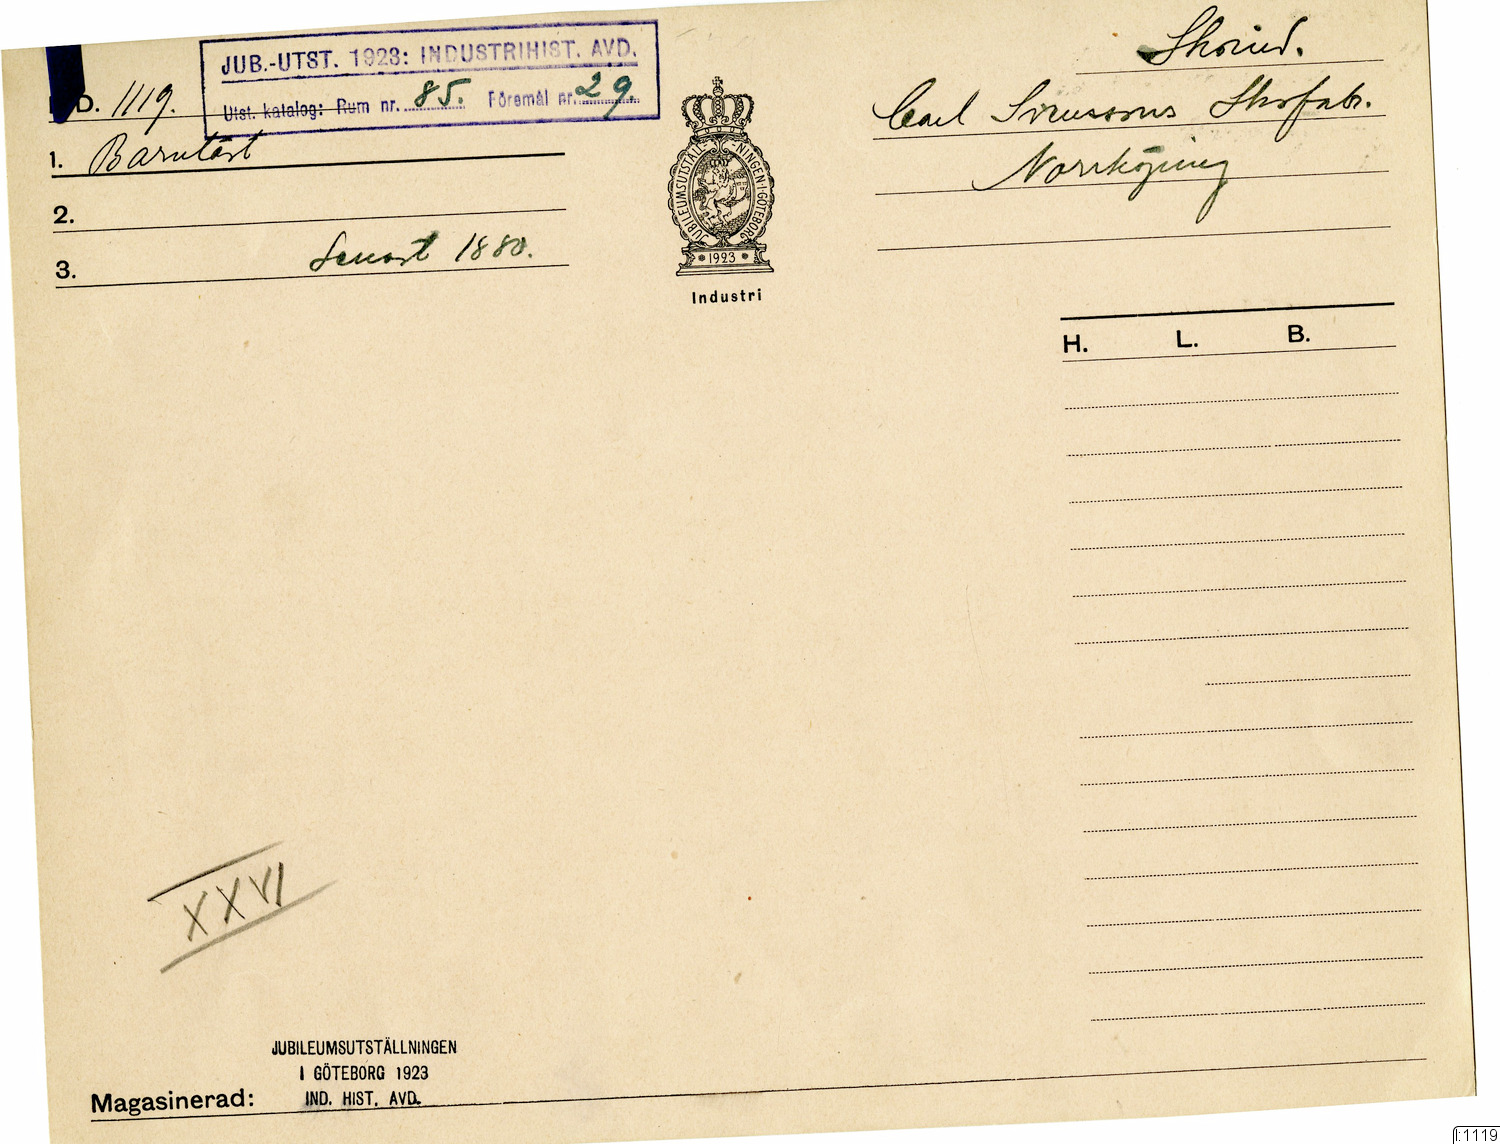 JUB.-UTST. 1923: INDUSTRIHIST. AVD.
Utst. katalog: Rum nr. 85. Föremål nr. 29.
D. 1119.
1. Barnläst
2.
3. Senast 1880.
JUBILEUMSUTSTÄLLNINGEN·I·GÖTEBORG
1923
Industri
Skoind.
Carl Svenssons Skofabr.
Norrköping
H. L. B.
XXVI
JUBILEUMSUTSTÄLLNINGEN
I GÖTEBORG 1923
Magasinerad: IND. HIST. AVD.
I:1119